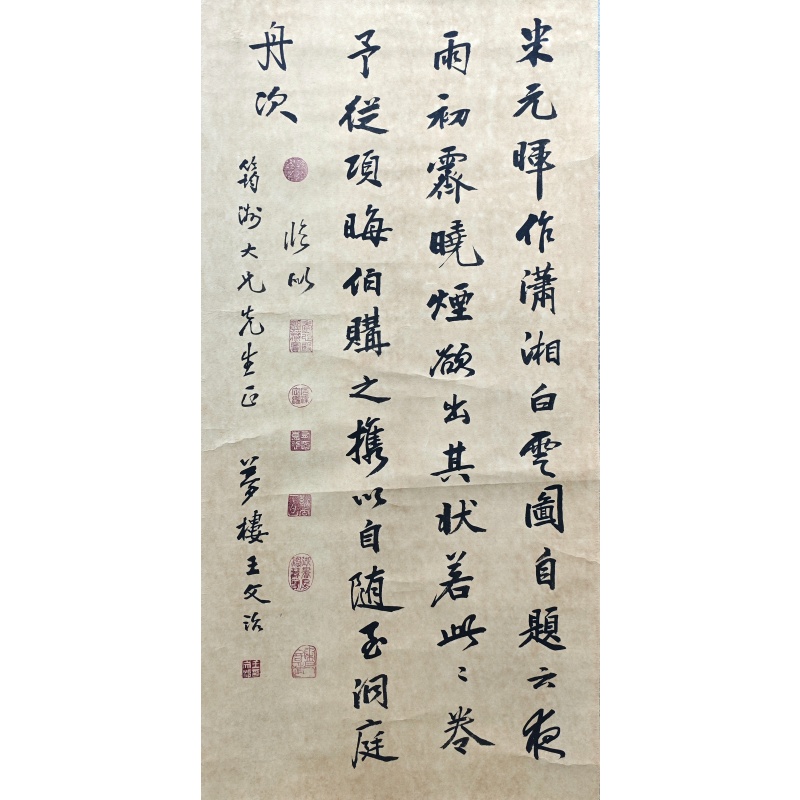 米元暉作瀟湘白雲圖自題云夜
雨初霽曉煙欲出其狀若此〻卷
予從項晦伯購之攜以自随至洞庭
舟次
臨似
筠洲大兄先生正 夢樓王文治